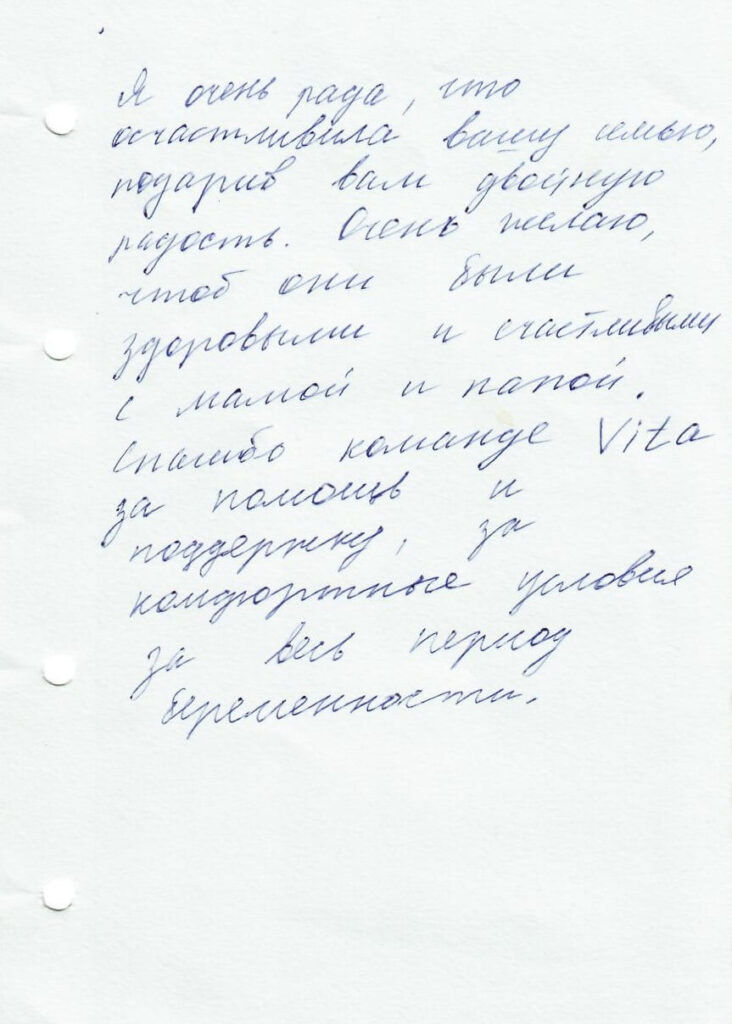 Я очень рада, что
осчастливила вашу семью,
подарив вам двойную
радость. Очень желаю,
чтоб они были
здоровыми и счастливыми
с мамой и папой.
Спасибо команде Vita
за помощь и
поддержку, за
комфортные условия
за весь период
беременности.